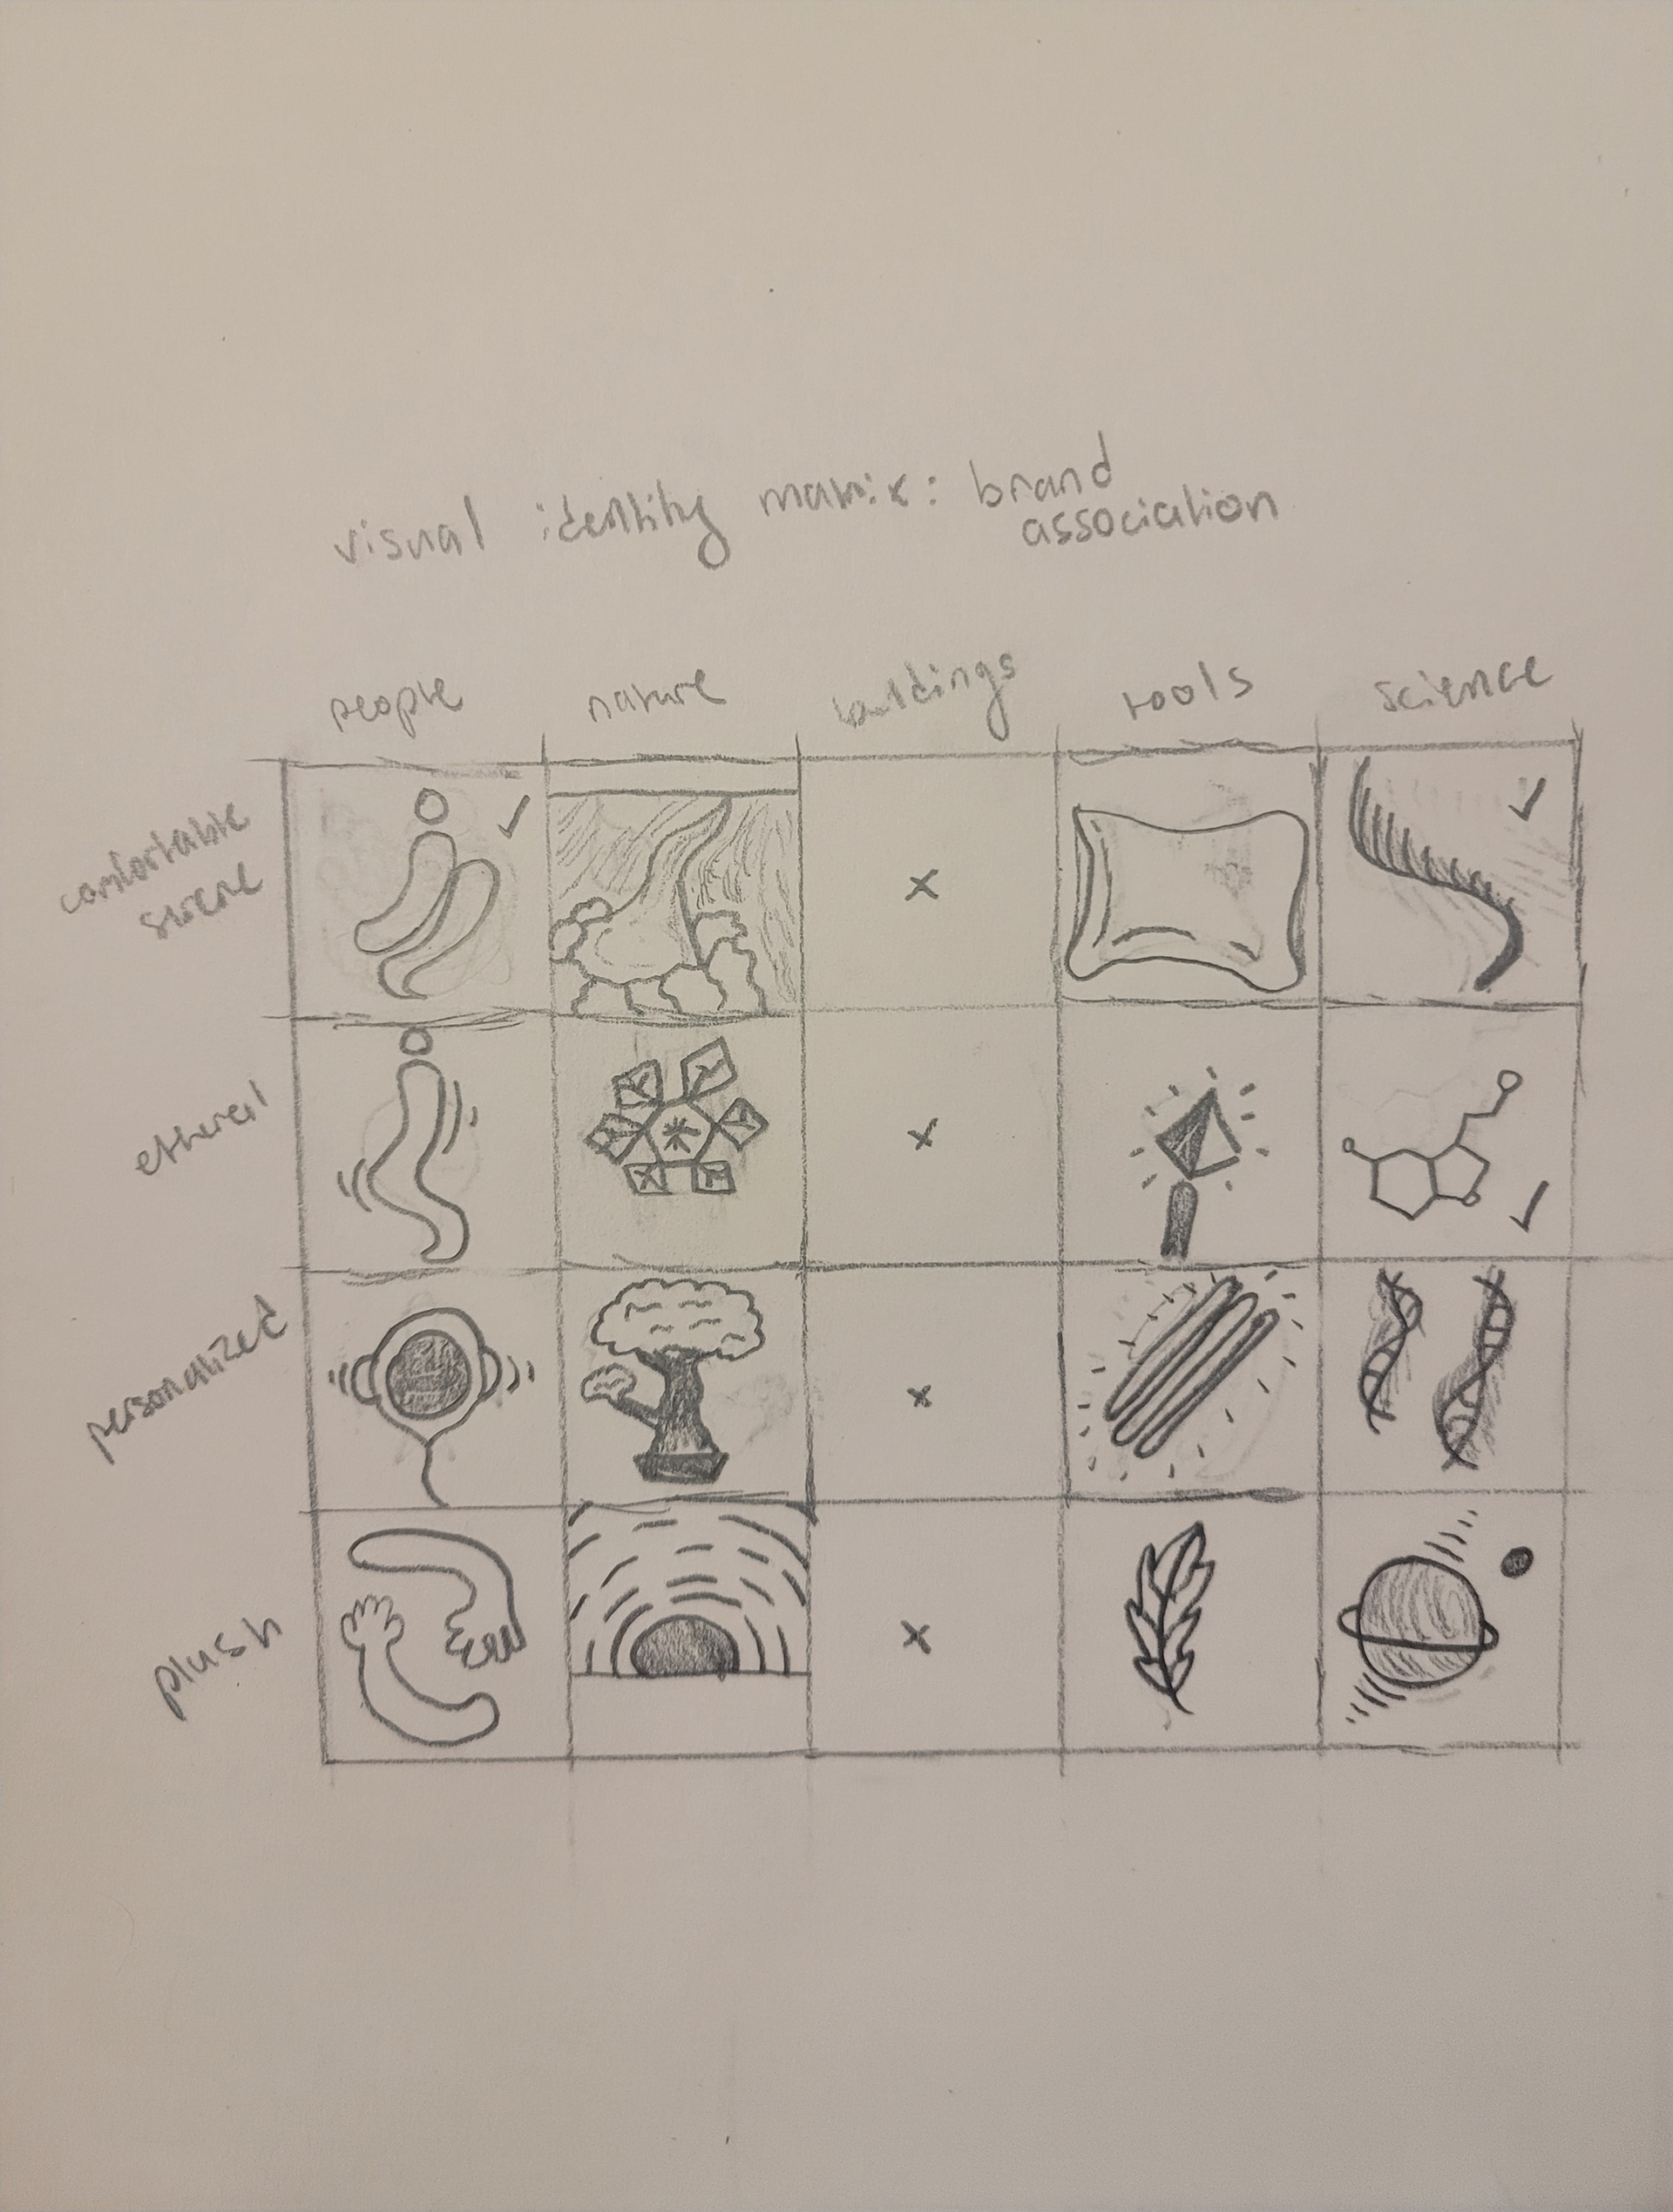 visual identity matrix: brand
association
people nature buildings tools science
comfortable
ethereal
personalized
plush